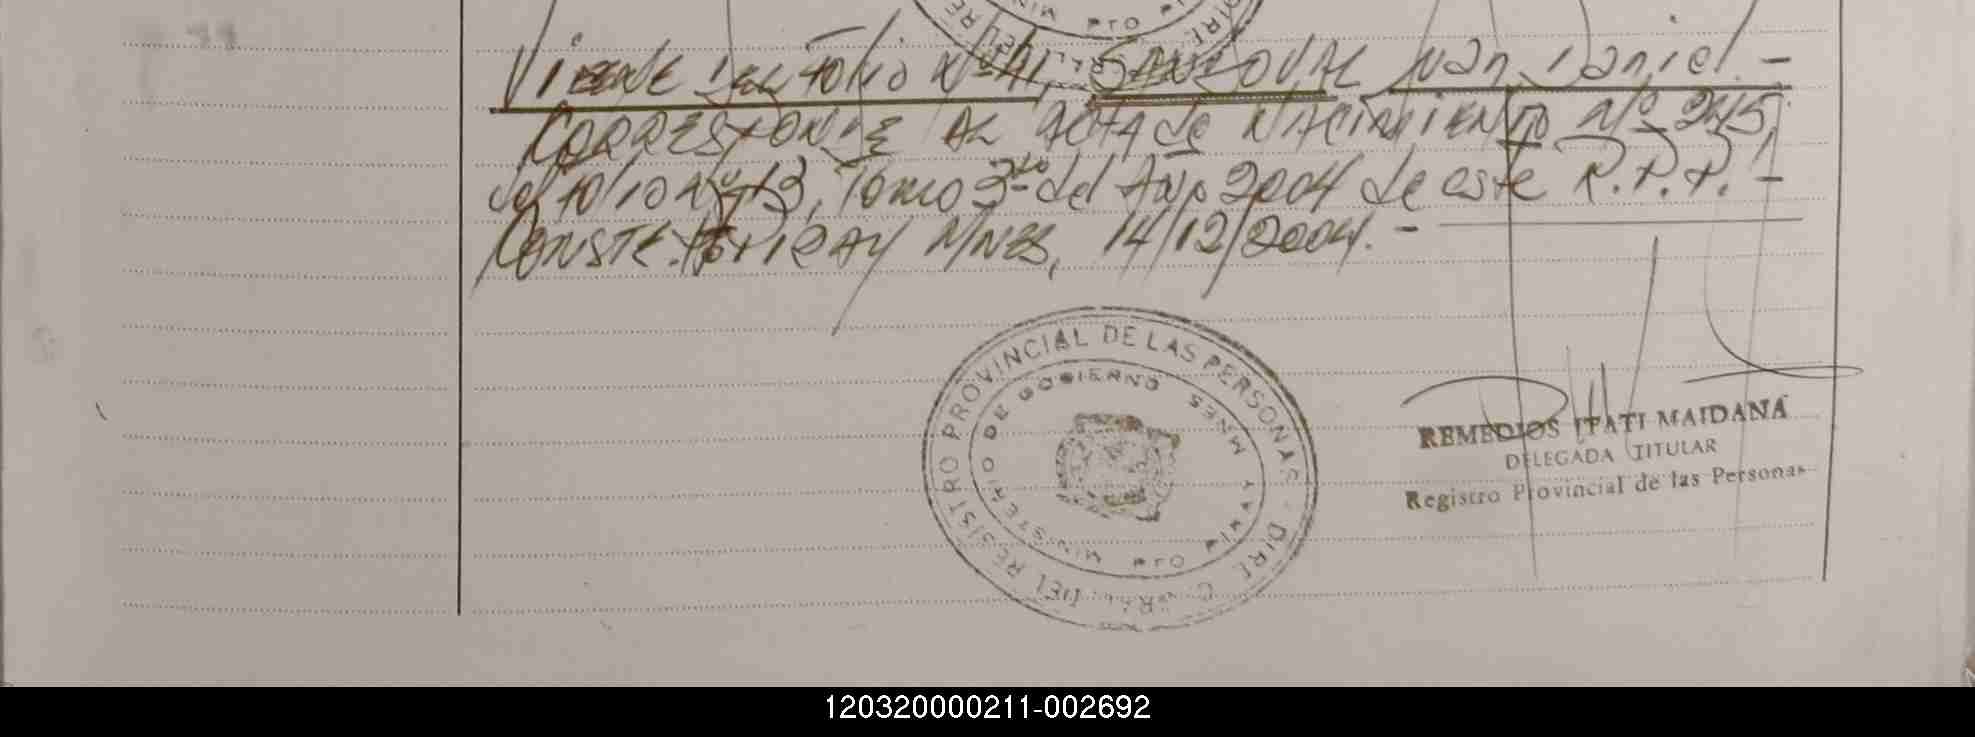 Viene del folio Nº 41, SANDOVAL Juan Daniel.-
CORRESPONDE AL ACTA de NACIMIENTO Nº 245,
del folio Nº 43, Tomo 3- del Año 2004 de este R.P.P.-
CONSTE. PIRAY MNES, 14/12/2004.-
REGISTRO PROVINCIAL DE LAS PERSONAS - DIRE. GRAL. DEL
MINISTERIO DE GOBIERNO MNES
PTO PIRAY
REMEDIOS ITATI MAIDANA
DELEGADA TITULAR
Registro Provincial de las Personas
120320000211-002692